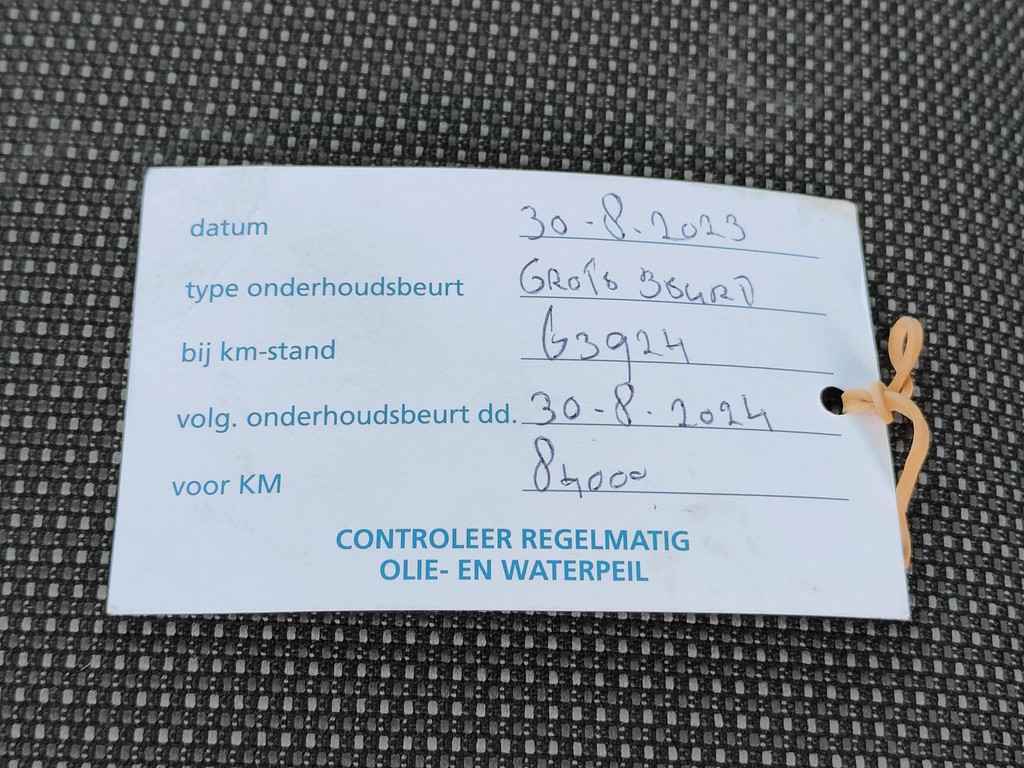 datum 30-8.2023
type onderhoudsbeurt GROTE BEURT
bij km-stand 63924
volg. onderhoudsbeurt dd. 30-8.2024
voor KM 84000
CONTROLEER REGELMATIG
OLIE- EN WATERPEIL